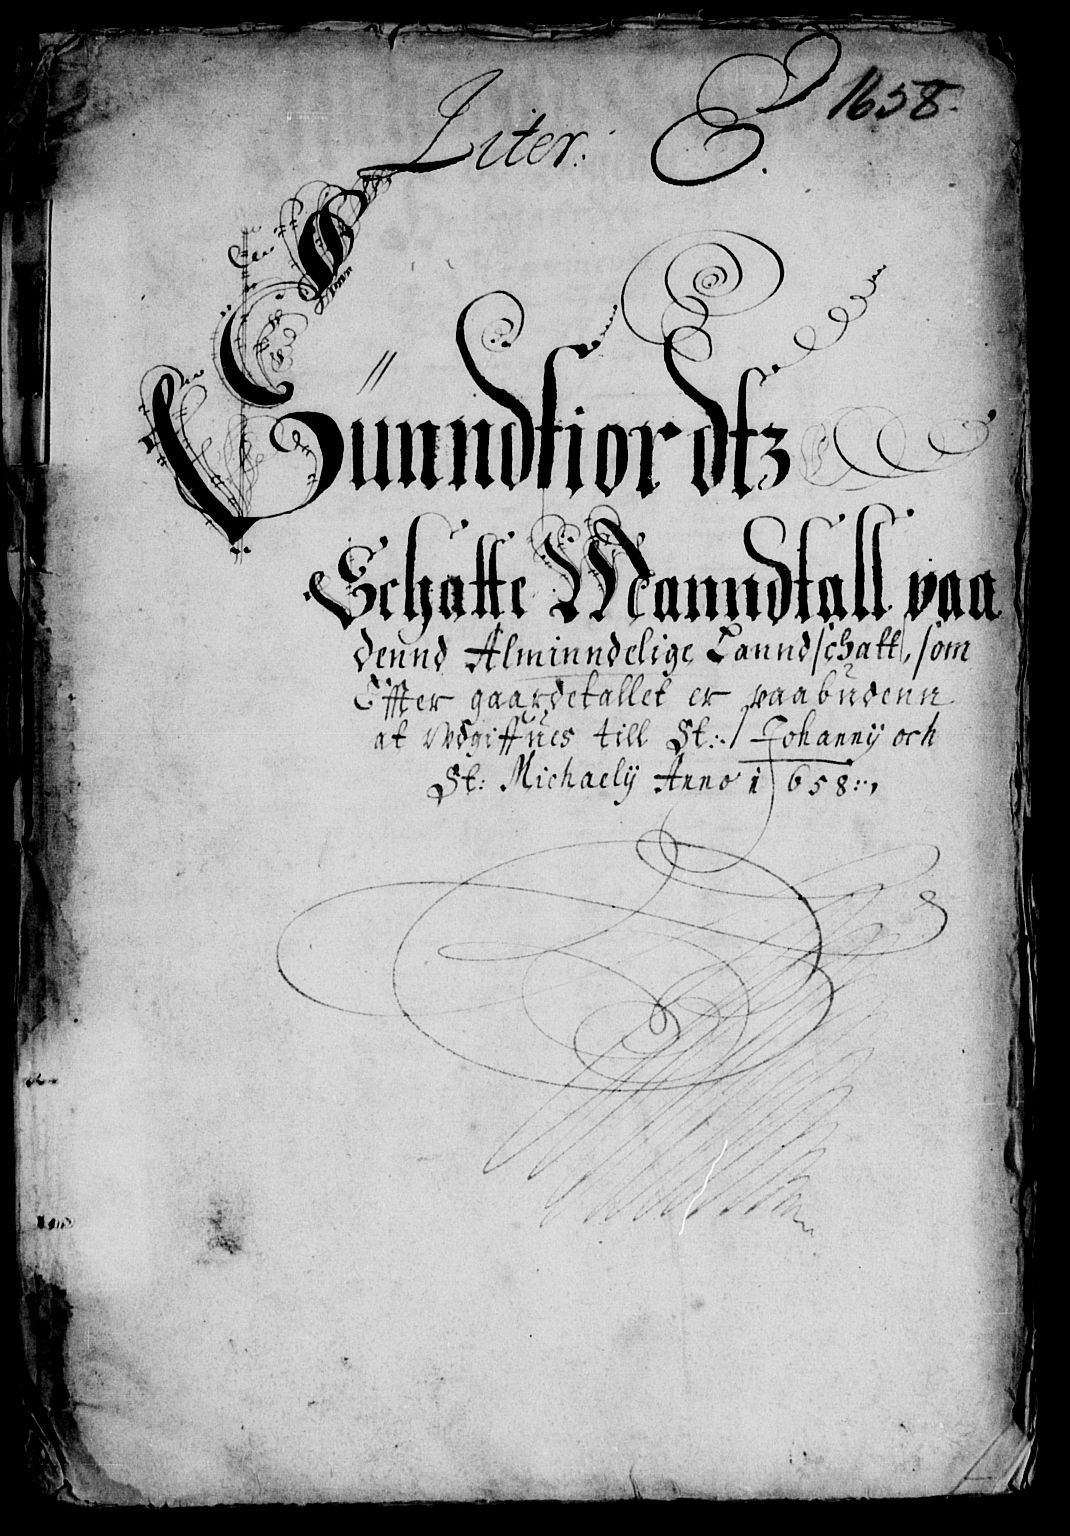 1658.
Liter: E.
Sunndfiordtz
Schatte Manndtall paa
dennd Almindelige Lanndschatt, som
Effter gaardetallet er paabudenn
at Udgiffues till St: Johannÿ och
St: Michaelÿ Anno 1658:,